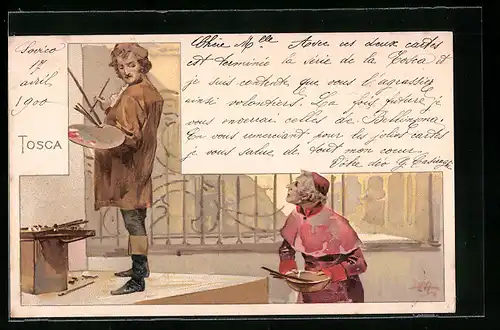 Sovico
17
avril
1900
TOSCA
Chère Mlle Avec ces deux cartes
est terminée la série de la Tosca et
je suis contente que vous l'agrassiez
ainsi volontiers. La fois future je
vous enverrai celles de Bellinzona.
En vous remerciant pour les jolies cartes
je vous salue de tout mon coeur
Vôtre